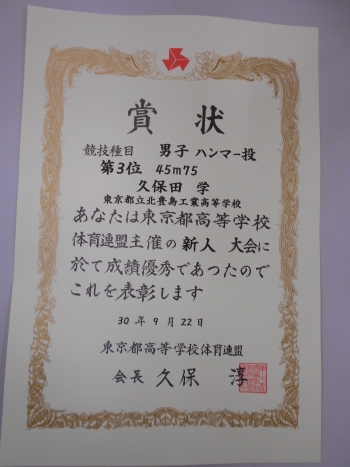 賞状
競技種目 男子 ハンマー投
第3位 45m75
久保田 学
東京都立北豊島工業高等学校
あなたは東京都高等学校
体育連盟主催の 新人 大会に
於て成績優秀であつたので
これを表彰します
30 年 9 月 22 日
東京都高等学校体育連盟
会長 久保 淳